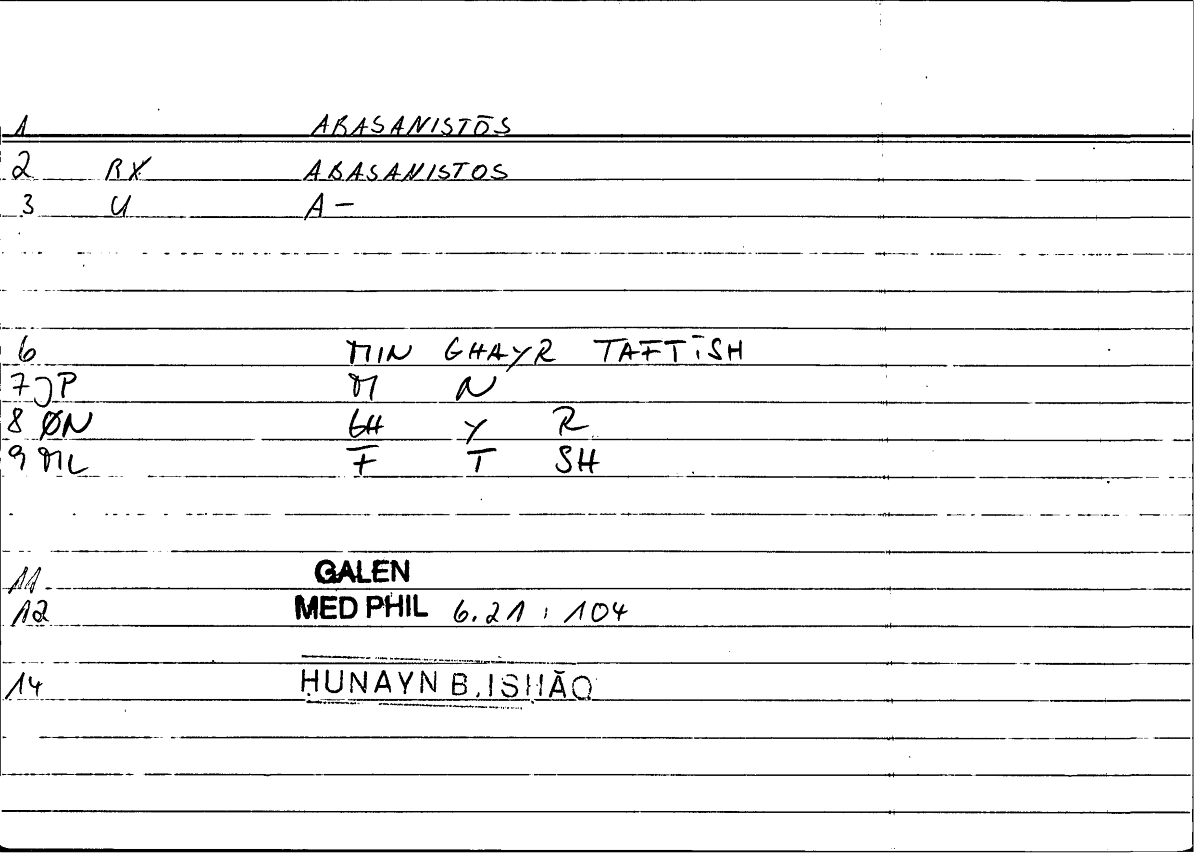 1 ABASANISTŌS
2 RX ABASANISTOS
3 U A-
6 MIN GHAYR TAFTĪSH
7 JP M N
8 ØN GH Y R
9 ML F T SH
11 GALEN
12 MED PHIL 6.21 : 104
14 ḤUNAYN B. ISḤĀQ